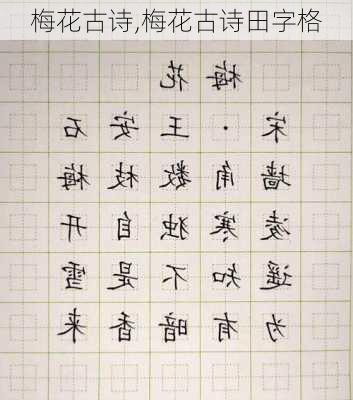 梅花古诗,梅花古诗田字格
梅花
宋·王安石
墙角数枝梅
凌寒独自开
遥知不是雪
为有暗香来